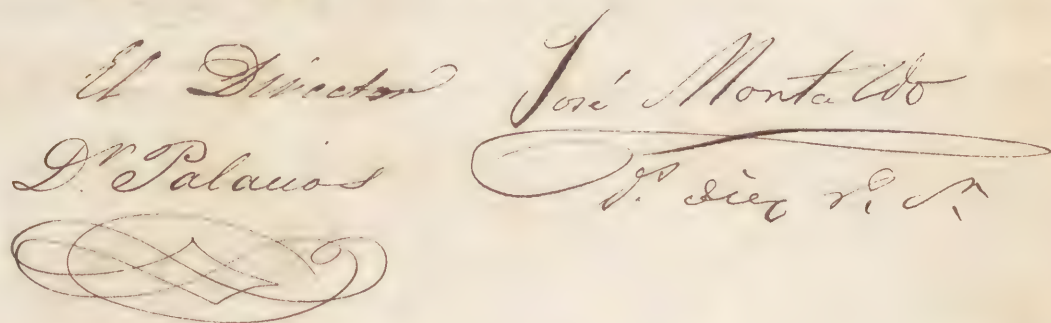 El Director
Dr. Palacios
José Montaldo